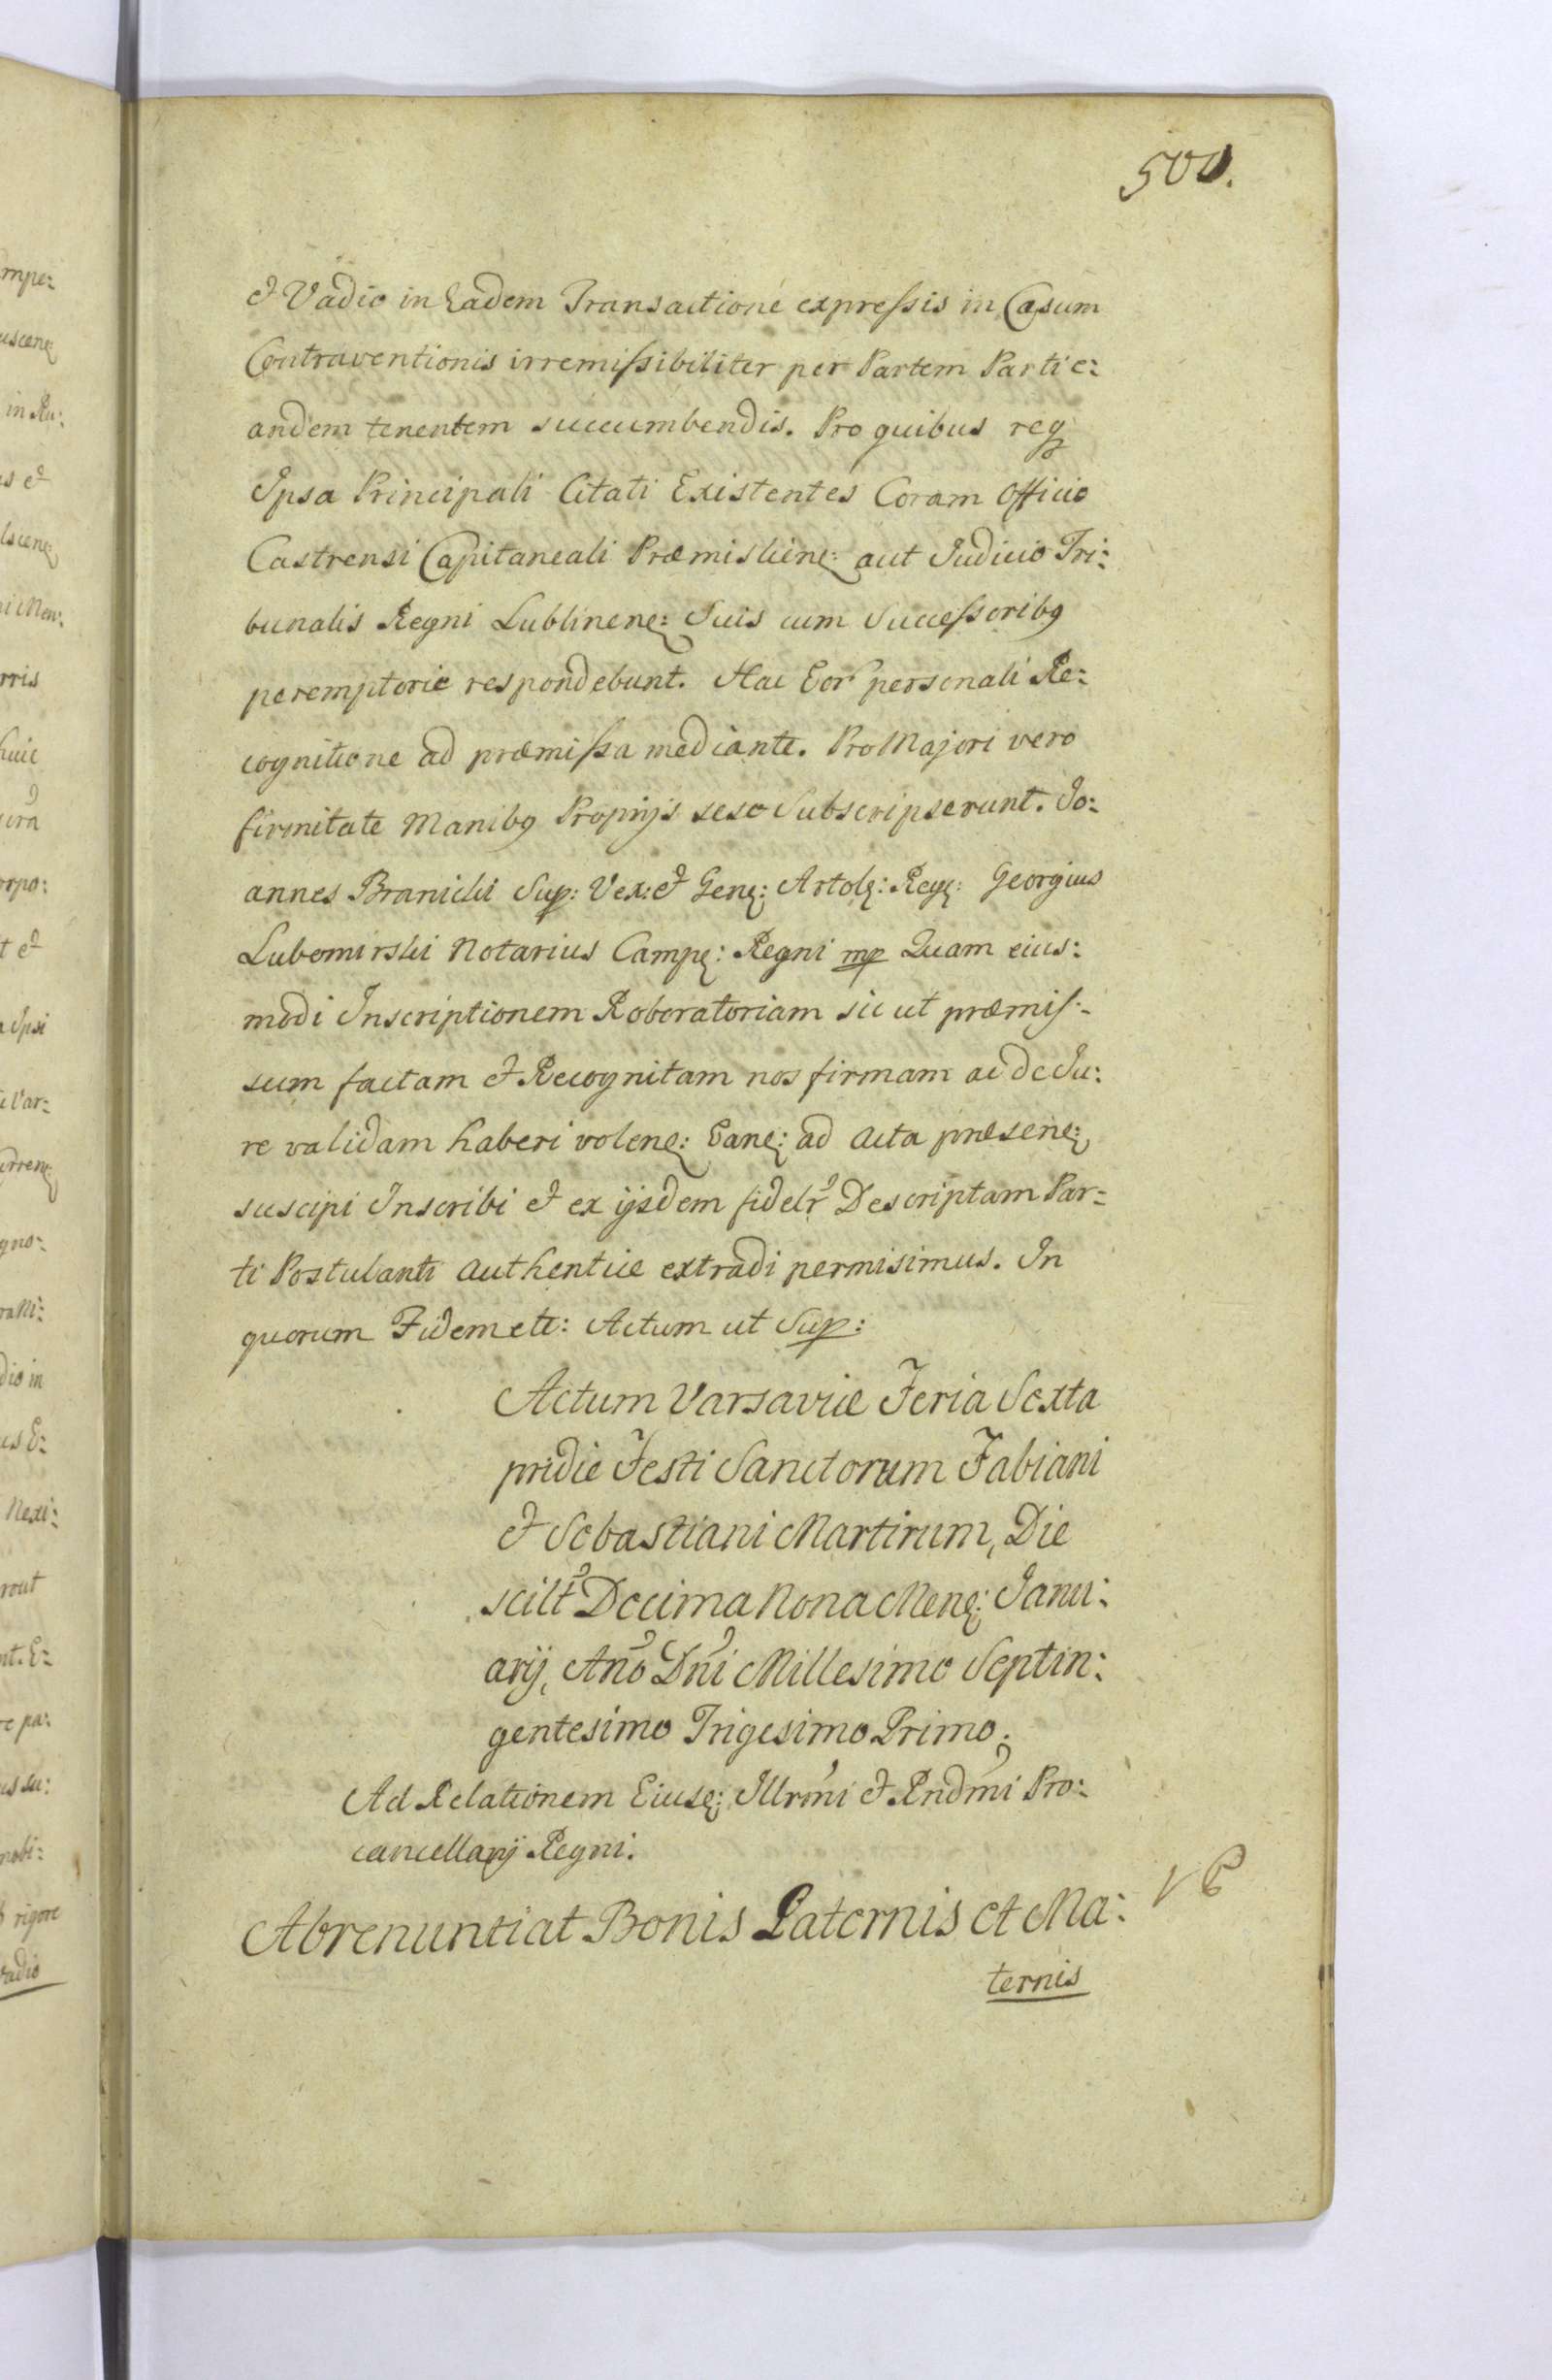 500.
et Vadio in Eadem Transactione expressis in Casum
Contraventionis irremissibiliter per Partem Parti e:
andem tenentem succumbendis. Pro quibus req
Ipsa Principali Citati Existentes Coram Officio
Castrensi Capitaneali Præmisliene: aut Judicio Tri:
bunalis Regni Lublinene: Suis cum Successoribq
peremptorie respondebunt. Hac Eor personali Re:
cognitione ad præmissa mediante. Pro Majori vero
firmitate Manibq Proprijs sese Subscripserunt. Jo:
annes Branicki Sup: Vex: et Gene: Artole: Rege: Georgius
Lubomirski Notarius Campe: Regni mp Quam eius:
modi Inscriptionem Roboratoriam sic ut præmis:
sum factam et Recognitam nos firmam ac de Ju:
re validam haberi volene: Eane: ad Acta præsene:
suscipi Inscribi et ex ijsdem fidelr Descriptam Par:
ti Postulanti Authentice extradi permisimus. In
quorum Fidem etc: Actum ut Sup:
Actum Varsaviæ Feria Sexta
pridie Festi Sanctorum Fabiani
et Sebastiani Martirum, Die
scilt Decima Nona Mene: Janu:
arij, Ano Dni Millesimo Septin:
gentesimo Trigesimo Primo.
Ad Relationem Eiuse: Illrmi et Rndmi Pro:
cancellarij Regni.
Abrenuntiat Bonis Paternis et Ma:
ternis
mpe:
uscene
in Ru:
s et
lscene
i Men:
rris
huic
orpo:
t et
Ipsi
Par:
gno:
dio in
us E:
Nexi:
rout
nt. E:
re pa:
us su:
nobi:
rigore
Vadio